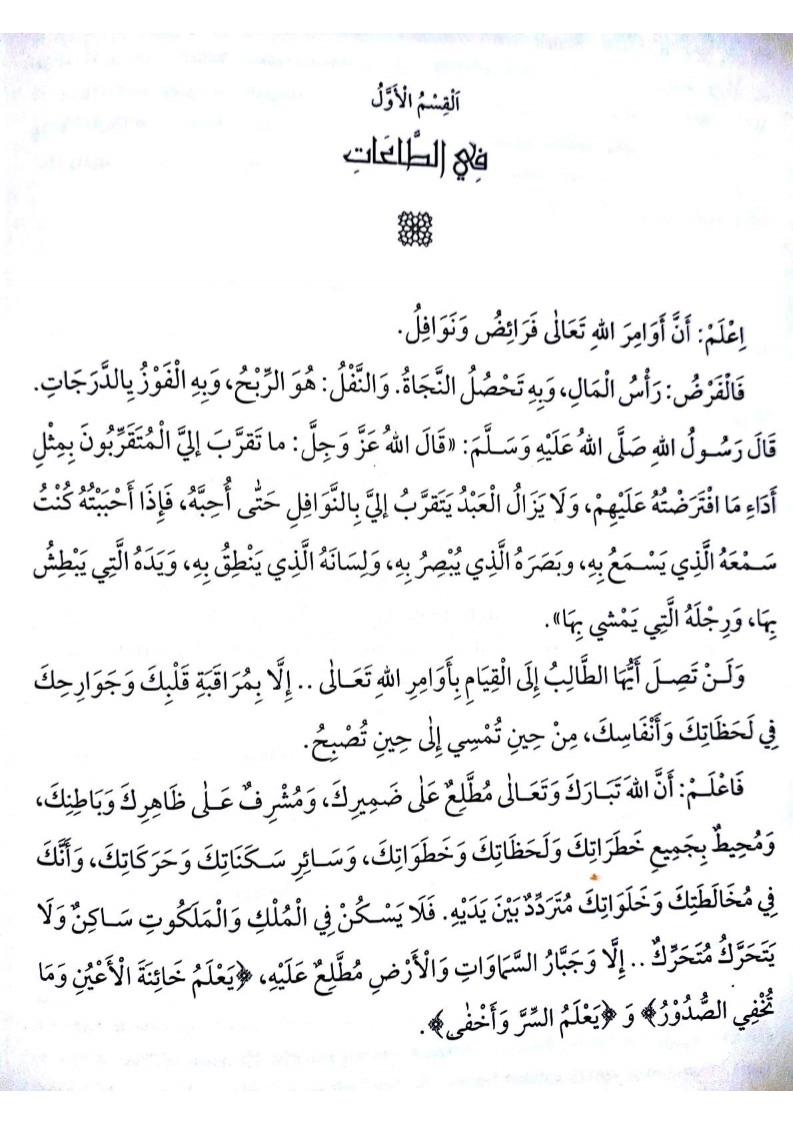 اَلْقِسْمُ الْأَوَّلُ
فِي الطَّاعَاتِ
اِعْلَمْ: أَنَّ أَوَامِرَ اللهِ تَعَالٰى فَرَائِضُ وَنَوَافِلُ.
فَالْفَرْضُ: رَأْسُ الْمَالِ، وَبِهِ تَحْصُلُ النَّجَاةُ. وَالنَّفْلُ: هُوَ الرِّبْحُ، وَبِهِ الْفَوْزُ بِالدَّرَجَاتِ.
قَالَ رَسُولُ اللهِ صَلَّى اللهُ عَلَيْهِ وَسَلَّمَ: «قَالَ اللهُ عَزَّ وَجَلَّ: ما تَقرَّبَ إليَّ الْمُتَقَرِّبُونَ بِمِثْلِ
أَدَاءِ مَا افْتَرَضْتُهُ عَلَيْهِمْ، وَلَا يَزَالُ الْعَبْدُ يَتَقرَّبُ إليَّ بِالنَّوَافِلِ حَتّٰى أُحِبَّهُ، فَإِذَا أَحْبَبْتُهُ كُنْتُ
سَمْعَهُ الَّذِي يَسْمَعُ بِهِ، وبَصَرَهُ الَّذِي يُبْصِرُ بِهِ، وَلِسَانَهُ الَّذِي يَنْطِقُ بِهِ، وَيَدَهُ الَّتِي يَبْطِشُ
بِهَا، وَرِجْلَهُ الَّتِي يَمْشي بِهَا».
وَلَنْ تَصِلَ أَيُّهَا الطَّالِبُ إِلَى الْقِيَامِ بِأَوَامِرِ اللهِ تَعَالٰى .. إِلَّا بِمُرَاقَبَةِ قَلْبِكَ وَجَوَارِحِكَ
فِي لَحَظَاتِكَ وَأَنْفَاسِكَ، مِنْ حِينِ تُمْسِي إِلٰى حِينِ تُصْبِحُ.
فَاعْلَمْ: أَنَّ اللهَ تَبَارَكَ وَتَعَالٰى مُطَّلِعٌ عَلٰى ضَمِيرِكَ، وَمُشْرِفٌ عَلٰى ظَاهِرِكَ وَبَاطِنِكَ،
وَمُحِيطٌ بِجَمِيعِ خَطَرَاتِكَ وَلَحَظَاتِكَ وَخَطَوَاتِكَ، وَسَائِرِ سَكَنَاتِكَ وَحَرَكَاتِكَ، وَأَنَّكَ
فِي مُخَالَطَتِكَ وَخَلَوَاتِكَ مُتَرَدِّدٌ بَيْنَ يَدَيْهِ. فَلَا يَسْكُنْ فِي الْمُلْكِ وَالْمَلَكُوتِ سَاكِنٌ وَلَا
يَتَحَرَّكُ مُتَحَرِّكٌ .. إِلَّا وَجَبَّارُ السَّمَاوَاتِ وَالْأَرْضِ مُطَّلِعٌ عَلَيْهِ، ﴿يَعْلَمُ خَائِنَةَ الْأَعْيُنِ وَمَا
تُخْفِي الصُّدُوْرُ﴾ وَ ﴿يَعْلَمُ السِّرَّ وَأَخْفٰى﴾.